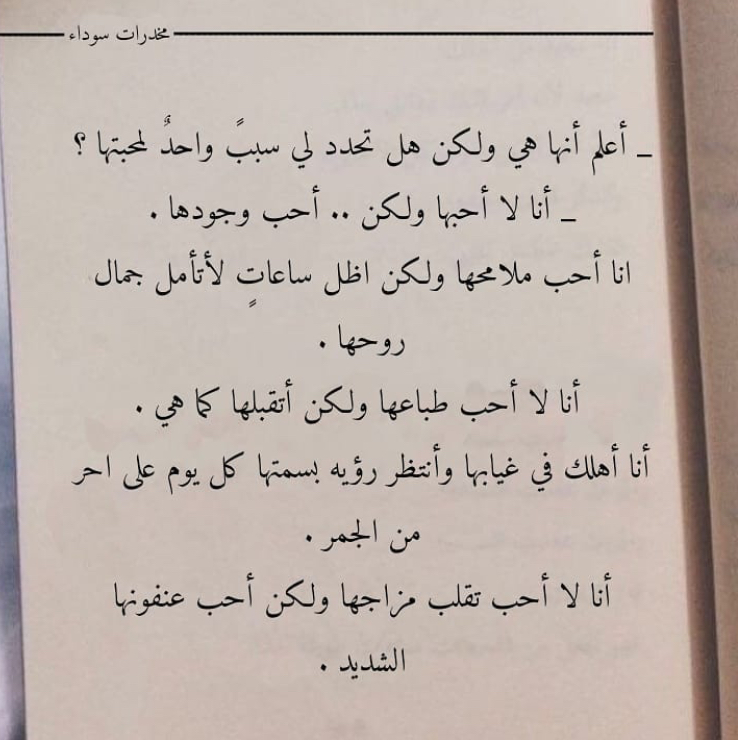 مخدرات سوداء
_ أعلم أنها هي ولكن هل تحدد لي سببً واحدٌ لمحبتها ؟
_ أنا لا أحبها ولكن .. أحب وجودها .
انا أحب ملامحها ولكن اظل ساعاتٍ لأتأمل جمال
روحها .
أنا لا أحب طباعها ولكن أتقبلها كما هي .
أنا أهلك في غيابها وأنتظر رؤيه بسمتها كل يوم على احر
من الجمر .
أنا لا أحب تقلب مزاجها ولكن أحب عنفونها
الشديد .